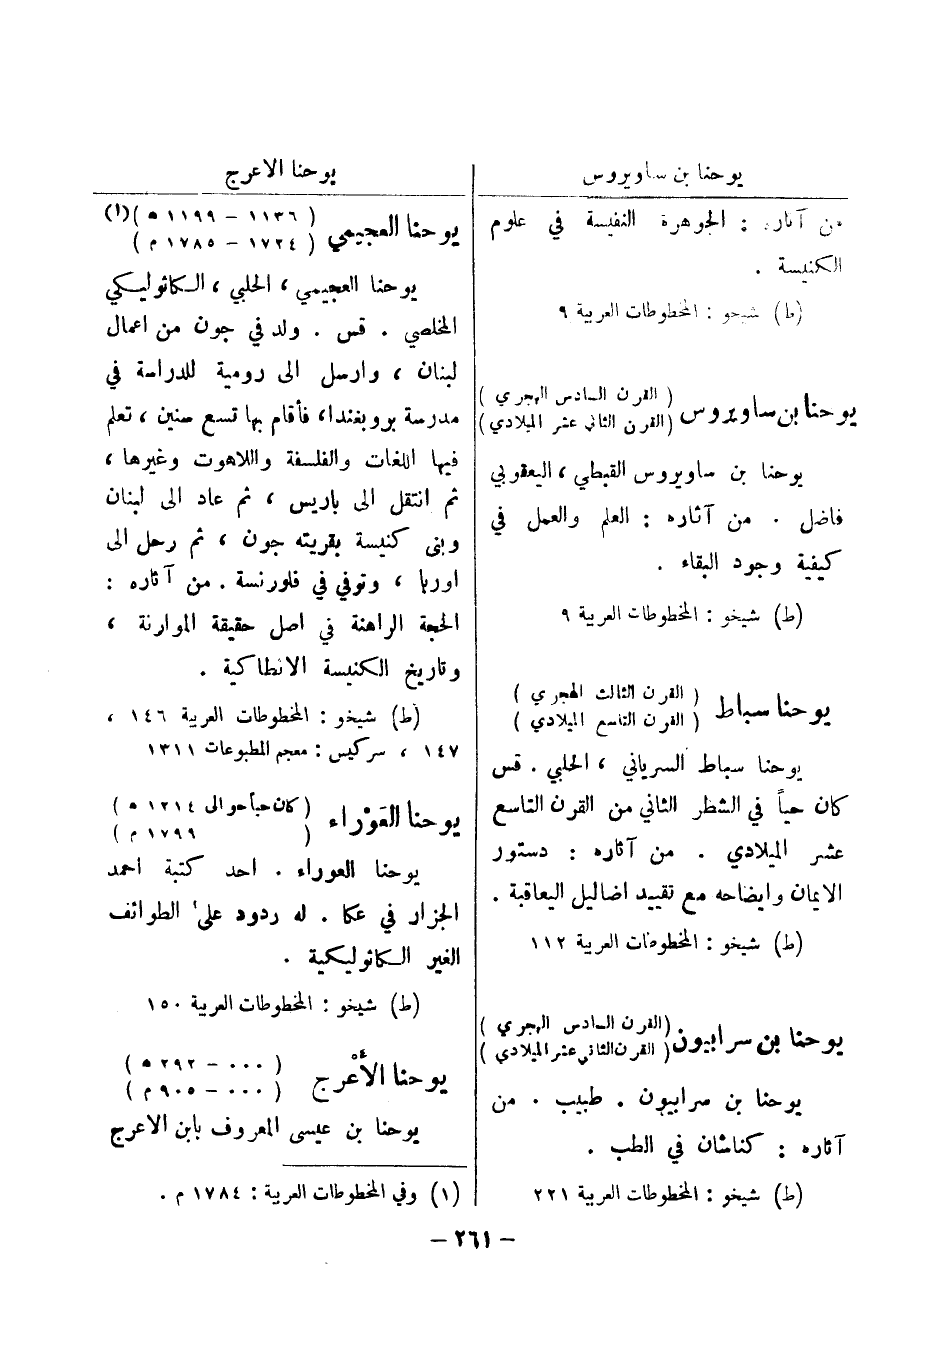 يوحنا بن ساويروس
من آثاره : الجوهرة النفيسة في علوم
الكنيسة .
(ط) شيخو : المخطوطات العربية ٩
يوحنا بن ساويروس ( القرن السادس الهجري )
( القرن الثاني عشر الميلادي )
يوحنا بن ساويروس القبطي ، اليعقوبي
فاضل . من آثاره : العلم والعمل في
كيفية وجود البقاء .
(ط) شيخو : المخطوطات العربية ٩
يوحنا سباط ( القرن الثالث الهجري )
( القرن التاسع الميلادي )
يوحنا سباط السرياني ، الحلبي . قس
كان حياً في الشطر الثاني من القرن التاسع
عشر الميلادي . من آثاره : دستور
الايمان وايضاحه مع تقييد اضاليل اليعاقبة .
(ط) شيخو : المخطوطات العربية ١١٢
يوحنا بن سرابيون ( القرن السادس الهجري )
( القرن الثاني عشر الميلادي )
يوحنا بن سرابيون . طبيب . من
آثاره : كناشان في الطب .
(ط) شيخو : المخطوطات العربية ٢٢١
يوحنا الاعرج
يوحنا العجيمي ( ١١٣٦ – ١١٩٩ هـ )(١)
( ١٧٢٤ – ١٧٨٥ م )
يوحنا العجيمي ، الحلبي ، الكاثوليكي
المخلصي . قس . ولد في جون من اعمال
لبنان ، وارسل الى رومية للدراسة في
مدرسة بروبغندا، فأقام بها تسع سنين ، تعلم
فيها اللغات والفلسفة واللاهوت وغيرها ،
ثم انتقل الى باريس ، ثم عاد الى لبنان
وبنى كنيسة بقريته جون ، ثم رحل الى
اوربا ، وتوفي في فلورنسة . من آثاره :
الحجة الراهنة في اصل حقيقة الموارنة ،
وتاريخ الكنيسة الانطاكية .
(ط) شيخو : المخطوطات العربية ١٤٦ ،
١٤٧ ، سركيس : معجم المطبوعات ١٣١١
يوحنا العَوْراء ( كان حياً حوالى ١٢١٤ هـ )
( ١٧٩٩ م )
يوحنا العوراء . احد كتبة احمد
الجزار في عكا . له ردود على الطوائف
الغير الكاثوليكية .
(ط) شيخو : المخطوطات العربية ١٥٠
يوحنا الأَعْرج ( ٠٠٠ – ٢٩٢ هـ )
( ٠٠٠ – ٩٠٥ م )
يوحنا بن عيسى المعروف بابن الاعرج
(١) وفي المخطوطات العربية : ١٧٨٤ م .
– ٢٦١ –